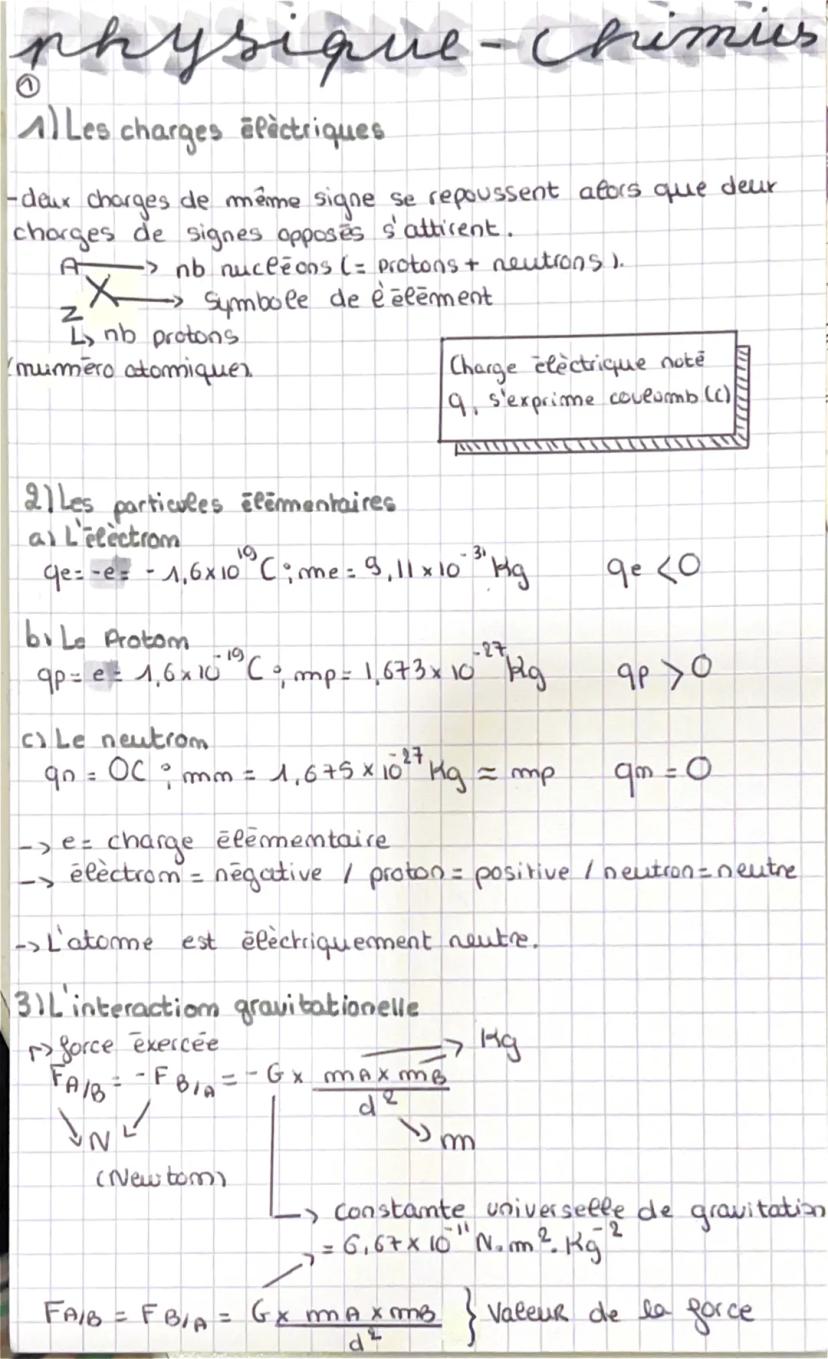 physique-chimies
①
1) Les charges élèctriques
-deux charges de même signe se repoussent alors que deux
charges de signes opposés s'attirent.
A → nb nucléons (= protons + neutrons).
X → symbole de l'élément
Z
↳ nb protons
(numéro atomique).
Charge élèctrique noté
q, s'exprime coulomb (C)
2) Les particules élémentaires
a) L'élèctron
qe = -e = -1,6×10¹⁹ C ; me = 9,11×10⁻³¹ Kg qe < 0
b) Le Proton
qp = e = 1,6×10⁻¹⁹ C ; mp = 1,673×10⁻²⁷ Kg qp > 0
c) Le neutron
qn = 0C ; mn = 1,675×10⁻²⁷ Kg ≈ mp qn = 0
→ e = charge élémentaire
→ élèctron = négative / proton = positive / neutron = neutre
→ L'atome est élèctriquement neutre.
3) L'interaction gravitationelle
↱ force éxercée → Kg
F A/B = -F B/A = -G × mA × mB / d²
↘ N ↙ ↘ m
(Newton)
→ constante universelle de gravitation
= 6,67×10⁻¹¹ N.m².Kg⁻²
F A/B = F B/A = G × mA × mB / d² } Valeur de la force